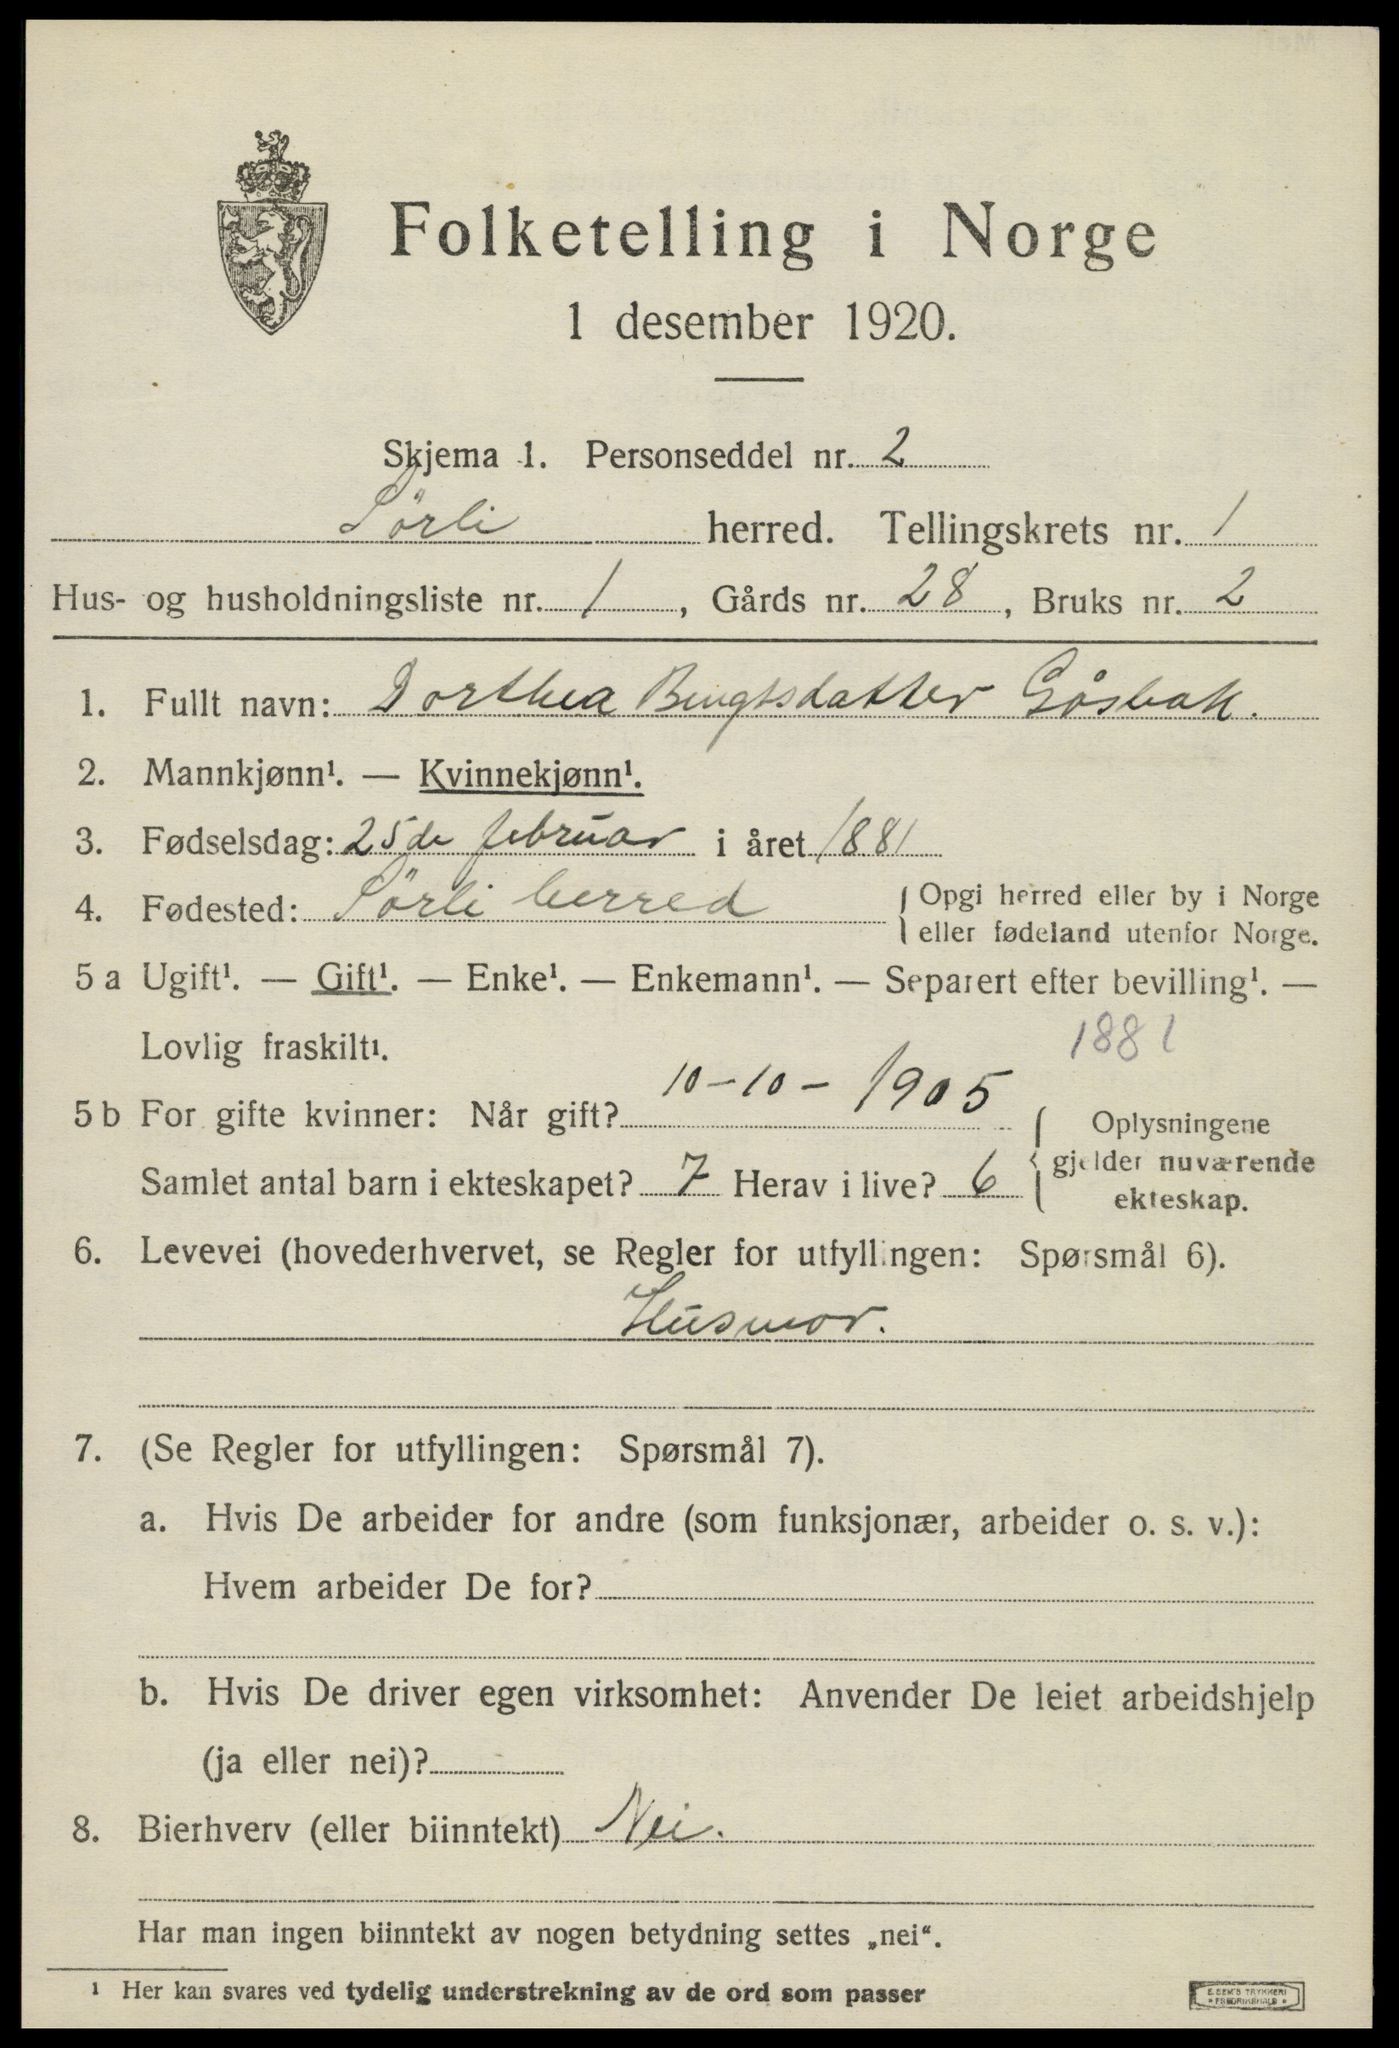 Folketelling i Norge
1 desember 1920.
Skjema 1. Personseddel nr. 2
Sörli herred. Tellingskrets nr. 1
Hus- og husholdningsliste nr. 1, Gårds nr. 28, Bruks nr. 2
1. Fullt navn: Dorthea Bengtsdatter Gåsbak.
2. Mannkjønn¹. — Kvinnekjønn¹.
3. Fødselsdag: 25de februar i året 1881
4. Fødested: Sörli herred { Opgi herred eller by i Norge
eller fødeland utenfor Norge.
5 a Ugift¹. — Gift¹. — Enke¹. — Enkemann¹. — Separert efter bevilling¹. —
Lovlig fraskilt¹. 1881
5 b For gifte kvinner: Når gift? 10-10-1905 { Oplysningene
gjelder nuværende
Samlet antal barn i ekteskapet? 7 Herav i live? 6
ekteskap.
6. Levevei (hovederhvervet, se Regler for utfyllingen: Spørsmål 6).
Husmor.
7. (Se Regler for utfyllingen: Spørsmål 7).
a. Hvis De arbeider for andre (som funksjonær, arbeider o. s. v.):
Hvem arbeider De for?
b. Hvis De driver egen virksomhet: Anvender De leiet arbeidshjelp
(ja eller nei)?
8. Bierhverv (eller biinntekt) Nei.
Har man ingen biinntekt av nogen betydning settes „nei“.
¹ Her kan svares ved tydelig understrekning av de ord som passer
E. SEM'S TRYKKERI
FREDRIKSHALD